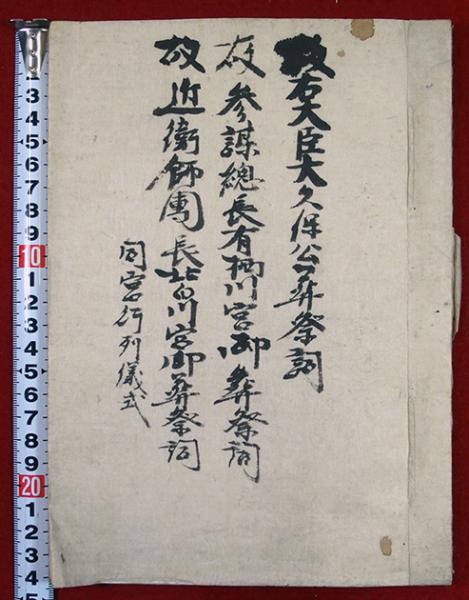 故右大臣大久保公葬祭詞
故参謀總長有栖川宮御葬祭詞
故近衛師團長北白川宮御葬祭詞
同宮行列儀式
3
4
5
6
7
8
9
10
1
2
3
4
5
6
7
8
9
20
1
2
3
4